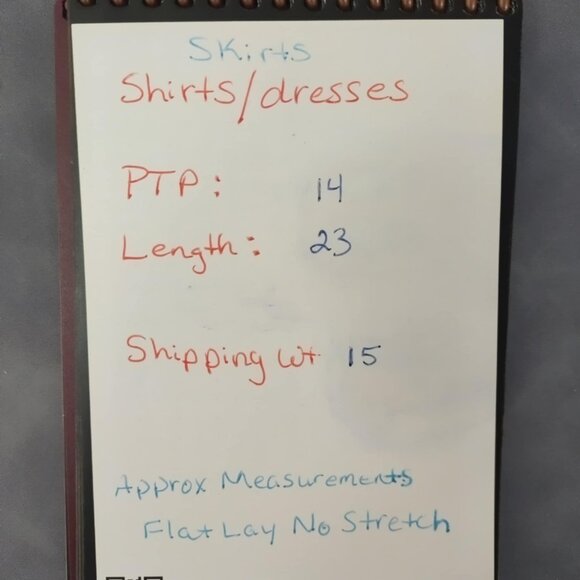 Skirts
Shirts/dresses
PTP: 14
Length: 23
Shipping Wt 15
Approx Measurements
Flat Lay No Stretch